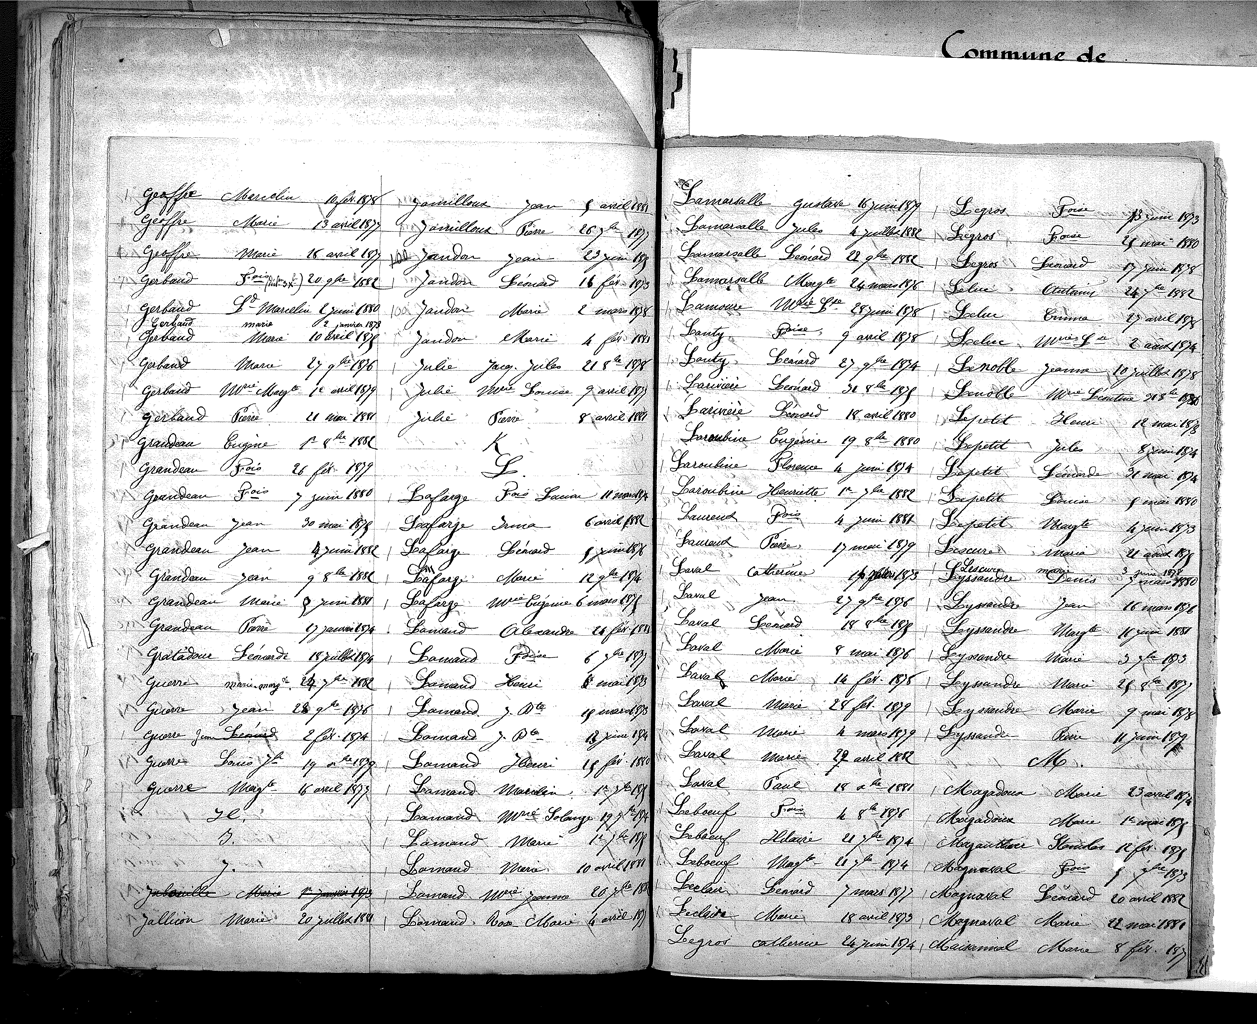 Commune de
Geoffre Marcelin 10 fév. 1878
Geoffre Marie 13 avril 1877
Geoffre Marie 18 avril 1877
Gerbaud Fois 20 9bre 1882
Gerbaud Ld Marcelin 2 juin 1880
Gerbaud marie 2 janvier 1873
Gerbaud Marie 10 avril 1878
Gerbaud Marie 27 9bre 1876
Gerbaud Mrie Margte 12 avril 1879
Gerbaud Pierre 21 mai 1881
Grandeau Eugène 1er 8bre 1882
Grandeau Fois 26 fév. 1879
Grandeau Fois 7 juin 1880
Grandeau Jean 30 mai 1878
Grandeau Jean 4 juin 1882
Grandeau Jean 9 8bre 1882
Grandeau Marie 8 juin 1881
Grandeau Pierre 17 janvier 1874
Gratadour Léonarde 18 juillet 1874
Guerre marie-margte 24 7bre 1882
Guerre Jean 28 9bre 1876
Guerre Jean Léonard 2 fév. 1874
Guerre Louis Jh 19 1879
Guerre Margte 16 avril 1877
H.
I.
J.
Jabouille Marie 1er janvier 1873
Jallion Marie 20 juillet 1881
Jamilloux Jean 5 avril 1881
Jamilloux Pierre 26 7bre 1877
Jandon Jean 23 juin
Jandon Léonard 16 fév. 1873
Jandon Marie 2 mars 1878
Jandon Marie 4 fév. 1881
Julie Jacq. Jules 21 8bre 1878
Julie Mrie Louise 9 avril 1877
Julie Pierre 8 avril 1881
K
L.
Lafarge Fois Louise 11 mars 1874
Lafarge Irma 6 avril 1882
Lafarge Léonard 5 juin 1878
Lafarge Marie 12 9bre 1874
Lafarge Mrie Eugénie 6 mars 1875
Lamaud Alexandre 21 fév. 1881
Lamaud Foise 6 7bre 1877
Lamaud Henri 6 mai 1873
Lamaud J. Bte 19 mars 1873
Lamaud J. Bte 12 juin 1874
Lamaud Henri 15 fév. 1880
Lamaud Marcelin 1er 7bre
Lamaud Mrie Solange 19 7bre
Lamaud Marie 1er 7bre
Lamaud Marie 10 avril 1881
Lamaud Mrie Jeanne 20 7bre
Lamaud Rose Marie 4 avril
Lamarsalle Gustave 16 juin 1879
Lamarsalle Jules 4 juillet 1882
Lamarsalle Léonard 22 9bre 1882
Lamarsalle Margte 24 mars 1878
Lamoure Mrie Lse 28 juin 1878
Lauty Foise 9 avril 1878
Lauty Léonard 27 9bre 1874
Larivière Léonard 31 8bre 1875
Larivière Léonard 18 avril 1880
Laroubine Eugénie 19 8bre 1880
Laroubine Florence 4 juin 1874
Laroubine Henriette 1er 7bre 1882
Laurent Fois 4 juin 1881
Lauraud Pierre 17 mai 1879
Laval Catherine 1873
Laval Jean 27 9bre 1876
Laval Léonard 18 8bre 1875
Laval Marie 8 mai 1876
Laval Marie 14 fév. 1878
Laval Marie 28 fév. 1879
Laval Marie 4 mars 1879
Laval Marie 29 avril 1882
Laval Paul 18 1881
Leboeuf Fois 4 8bre 1876
Leboeuf Hilaire 21 7bre 1874
Leboeuf Margte 21 7bre 1874
Leclair Léonard 7 mars 1877
Leclaire Marie 18 avril 1873
Legros Catherine 24 juin 1874
Legros Foise 13 juin 1873
Legros Foise 25 mai 1880
Legros Léonard 17 juin 1878
Leluc Antoine 24 7bre 1882
Leluc Emma 27 avril 1878
Leluc Mrie Lse 2 août 1874
Lenoble Jeanne 10 juillet 1878
Lenoble Mrie Léontine 31 8bre 1880
Lepetit Henri 12 mai 1878
Lepetit Jules 8 juin 1874
Lepetit Léonarde 31 mai 1874
Lepetit Louise 5 mai 1880
Lepetit Margte 4 juin 1873
Lescure Marie 21 août 1875
Lescure marie 3 juin 1878
Leyssandre Denis 7 mars 1880
Leyssandre Jean 16 mars 1876
Leyssandre Margte 11 juin 1881
Leyssandre Marie 3 7bre 1873
Leyssandre Marie 25 8bre 1877
Leyssandre Marie 9 mai 1878
Leyssandre Pierre 11 juin 1879
M.
Magadoux Marie 23 avril 1874
Magadoux Marie 1er mai 1875
Magnaval Fois 5 9bre 1873
Magnaval Léonard 20 avril 1882
Magnaval Marie 22 mai 1881
Maisonnial Marie 8 fév. 1877